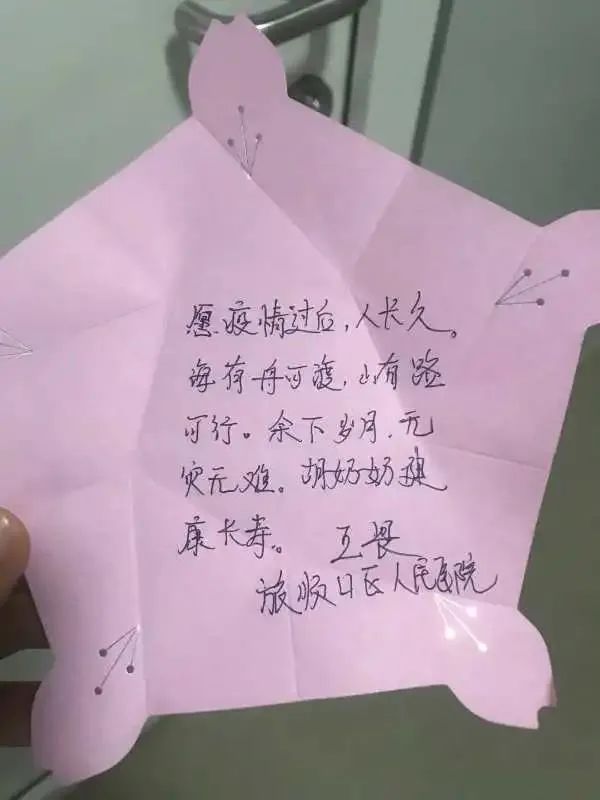 愿疫情过后，人长久。
海有舟可渡，山有路
可行。余下岁月，无
灾无难。胡奶奶健
康长寿。 王
旅顺口区人民医院